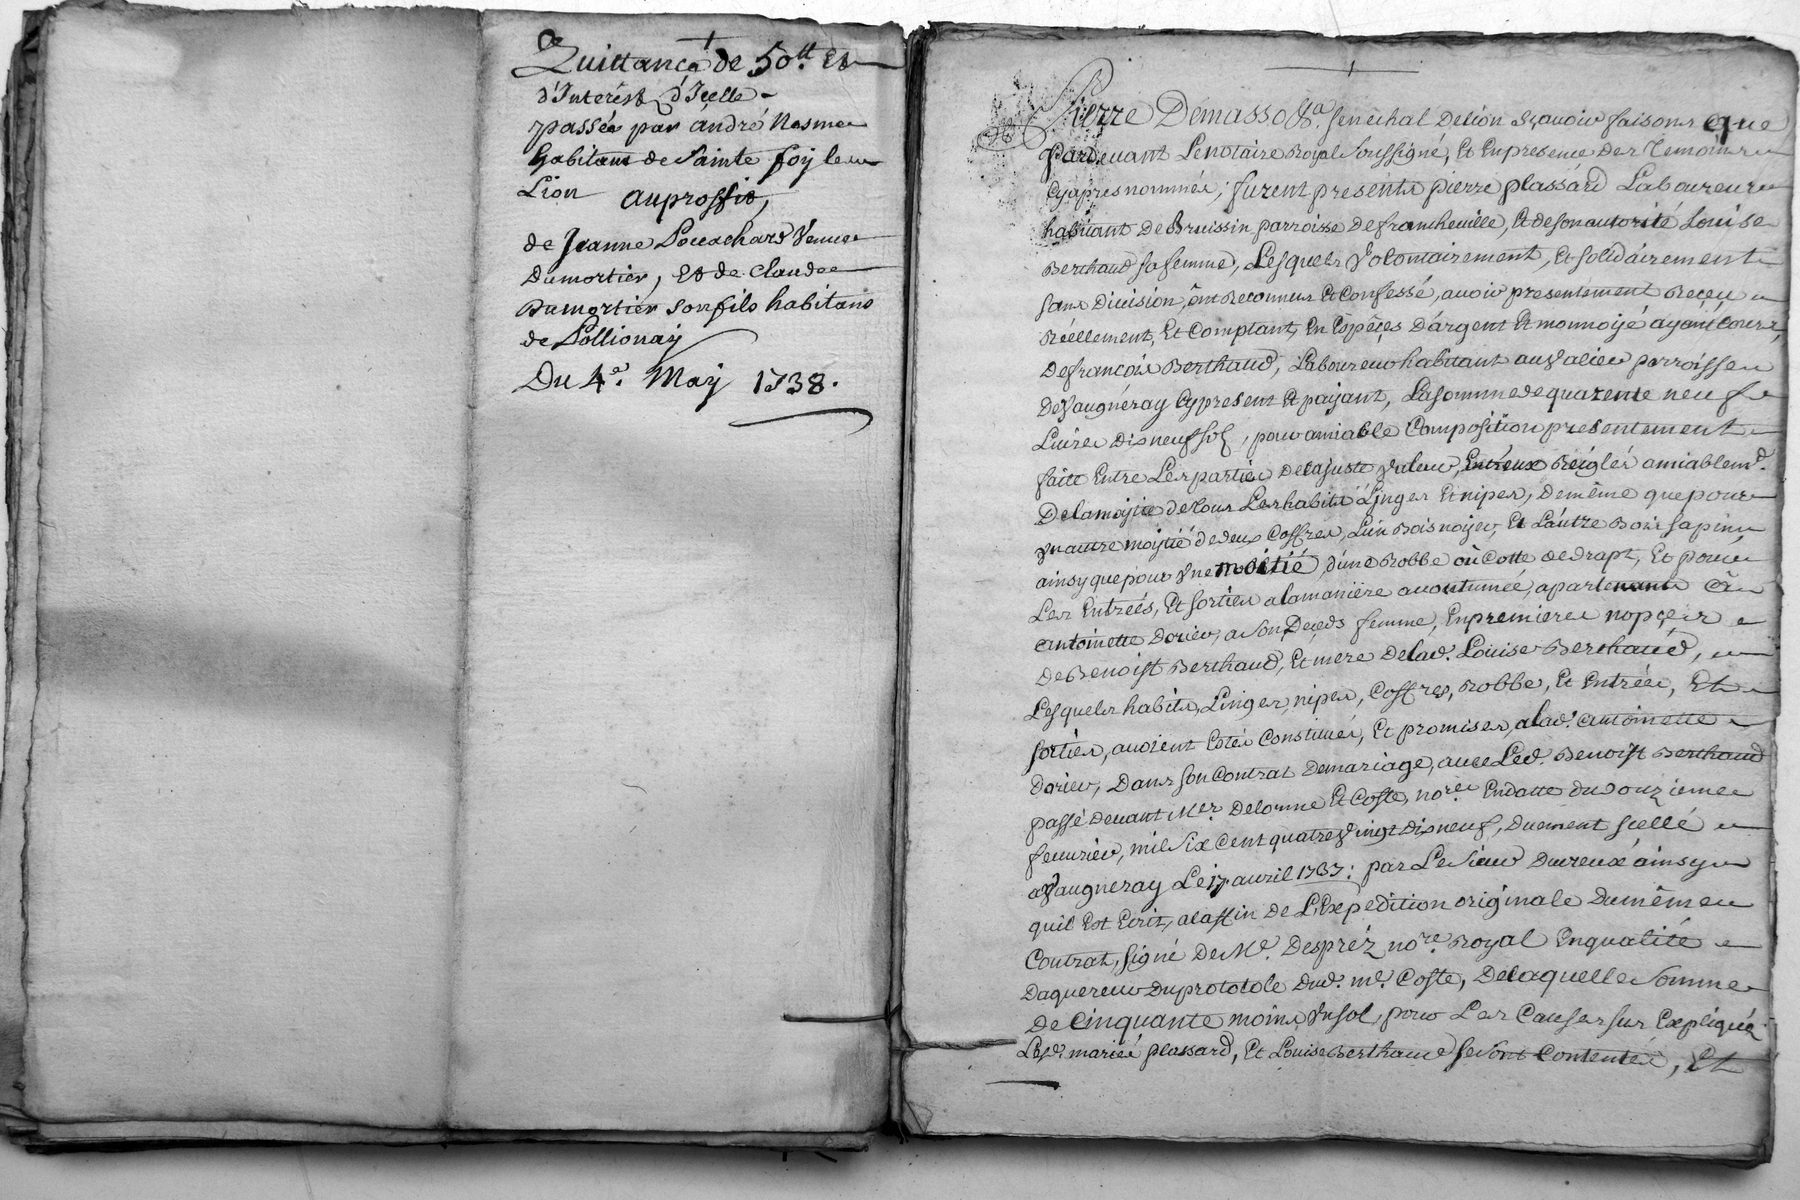 Quittance de 50ᵗᵗ Et
d'Interêst d'Icelle
passée par andré Nesme
habitant de Sainte foy les
Lion auproffit,
de Jeanne Veuue
Dumortier, Et de Claude
Dumortier son fils habitans
de Pollionay
Du 4ᵉ. May 1738.
Pierre Demasso &ᵃ. senechal Delion sçauoir faisons que
Pardeuant Lenotaire Royal Soussigné, Et Enpresence des Temoins
Cyapres nommés, furent presents pierre plassard Laboureur
habitant De Bruissin parroisse Defrancheuille, Et deson autorité Louise
Berthaud sa femme, Lesquels Volontairement, Et solidairement
sans Diuision, ont Reconnus Et Confessé, auoir presentement Reçeu
Réellement, Et Comptant, En Espéçes Dargent Et monnoyé ayant Cours,
Defrancois Berthaud, Laboureur habitant au parroisse
DeVaugneray Cypresent Et payant, Lasomme de quarente neuf
Liures Disneuf sols, pour amiable Composition presentement
faite Entre Les parties Delajuste Valeur, Entreux Reiglés amiablemᵗ.
Delamoitié detous Les habits Linges Et nipes, demême que pour
Vnautre moitié de deux Coffres, Lun Bois noyer, Et Lautre Bois sapin
ainsy que pour Vne moitié d'une Robbe ou Cotte de drapt, Et pour
Les Entrées, Et sorties alamanière acoutumée, apartenants a
antoinette Dorier, a son Deçeds femme, Enpremieres nopçes
de Benoist Berthaud, Et mere Delad. Louise Berthaud,
Lesquels habits, Linges, nipes, Coffres, Robbe, Et Entrées, Et
sorties, auoient Estés Constitués, Et promises, alad. antoinette
Dorier, Dans son Contrat Demariage, auec Led. Benoist Berthaud
passé deuant Mᵉʳ Delorme Et Coste, noʳᵉˢ Endatte du douzieme
feurier, mil six Cent quatre Vingt Disneuf, Duement scellé
aVaugneray Le 17 auril 1737: par Le sieur ainsy
quil Est Ecrit, alaffin de L'Expedition originale Dumême
Contrat, signé De Mᵉ. Despréz noʳᵉ Royal Enqualité
Daquereur Duprotolole Dud. mᵉ. Coste, Delaquelle Somme
de Cinquante moins Vnsol, pour Les Causes sus Expliquéz
Lesd. mariés plassard, Et Louise Berthaud se sont Contentés, Et